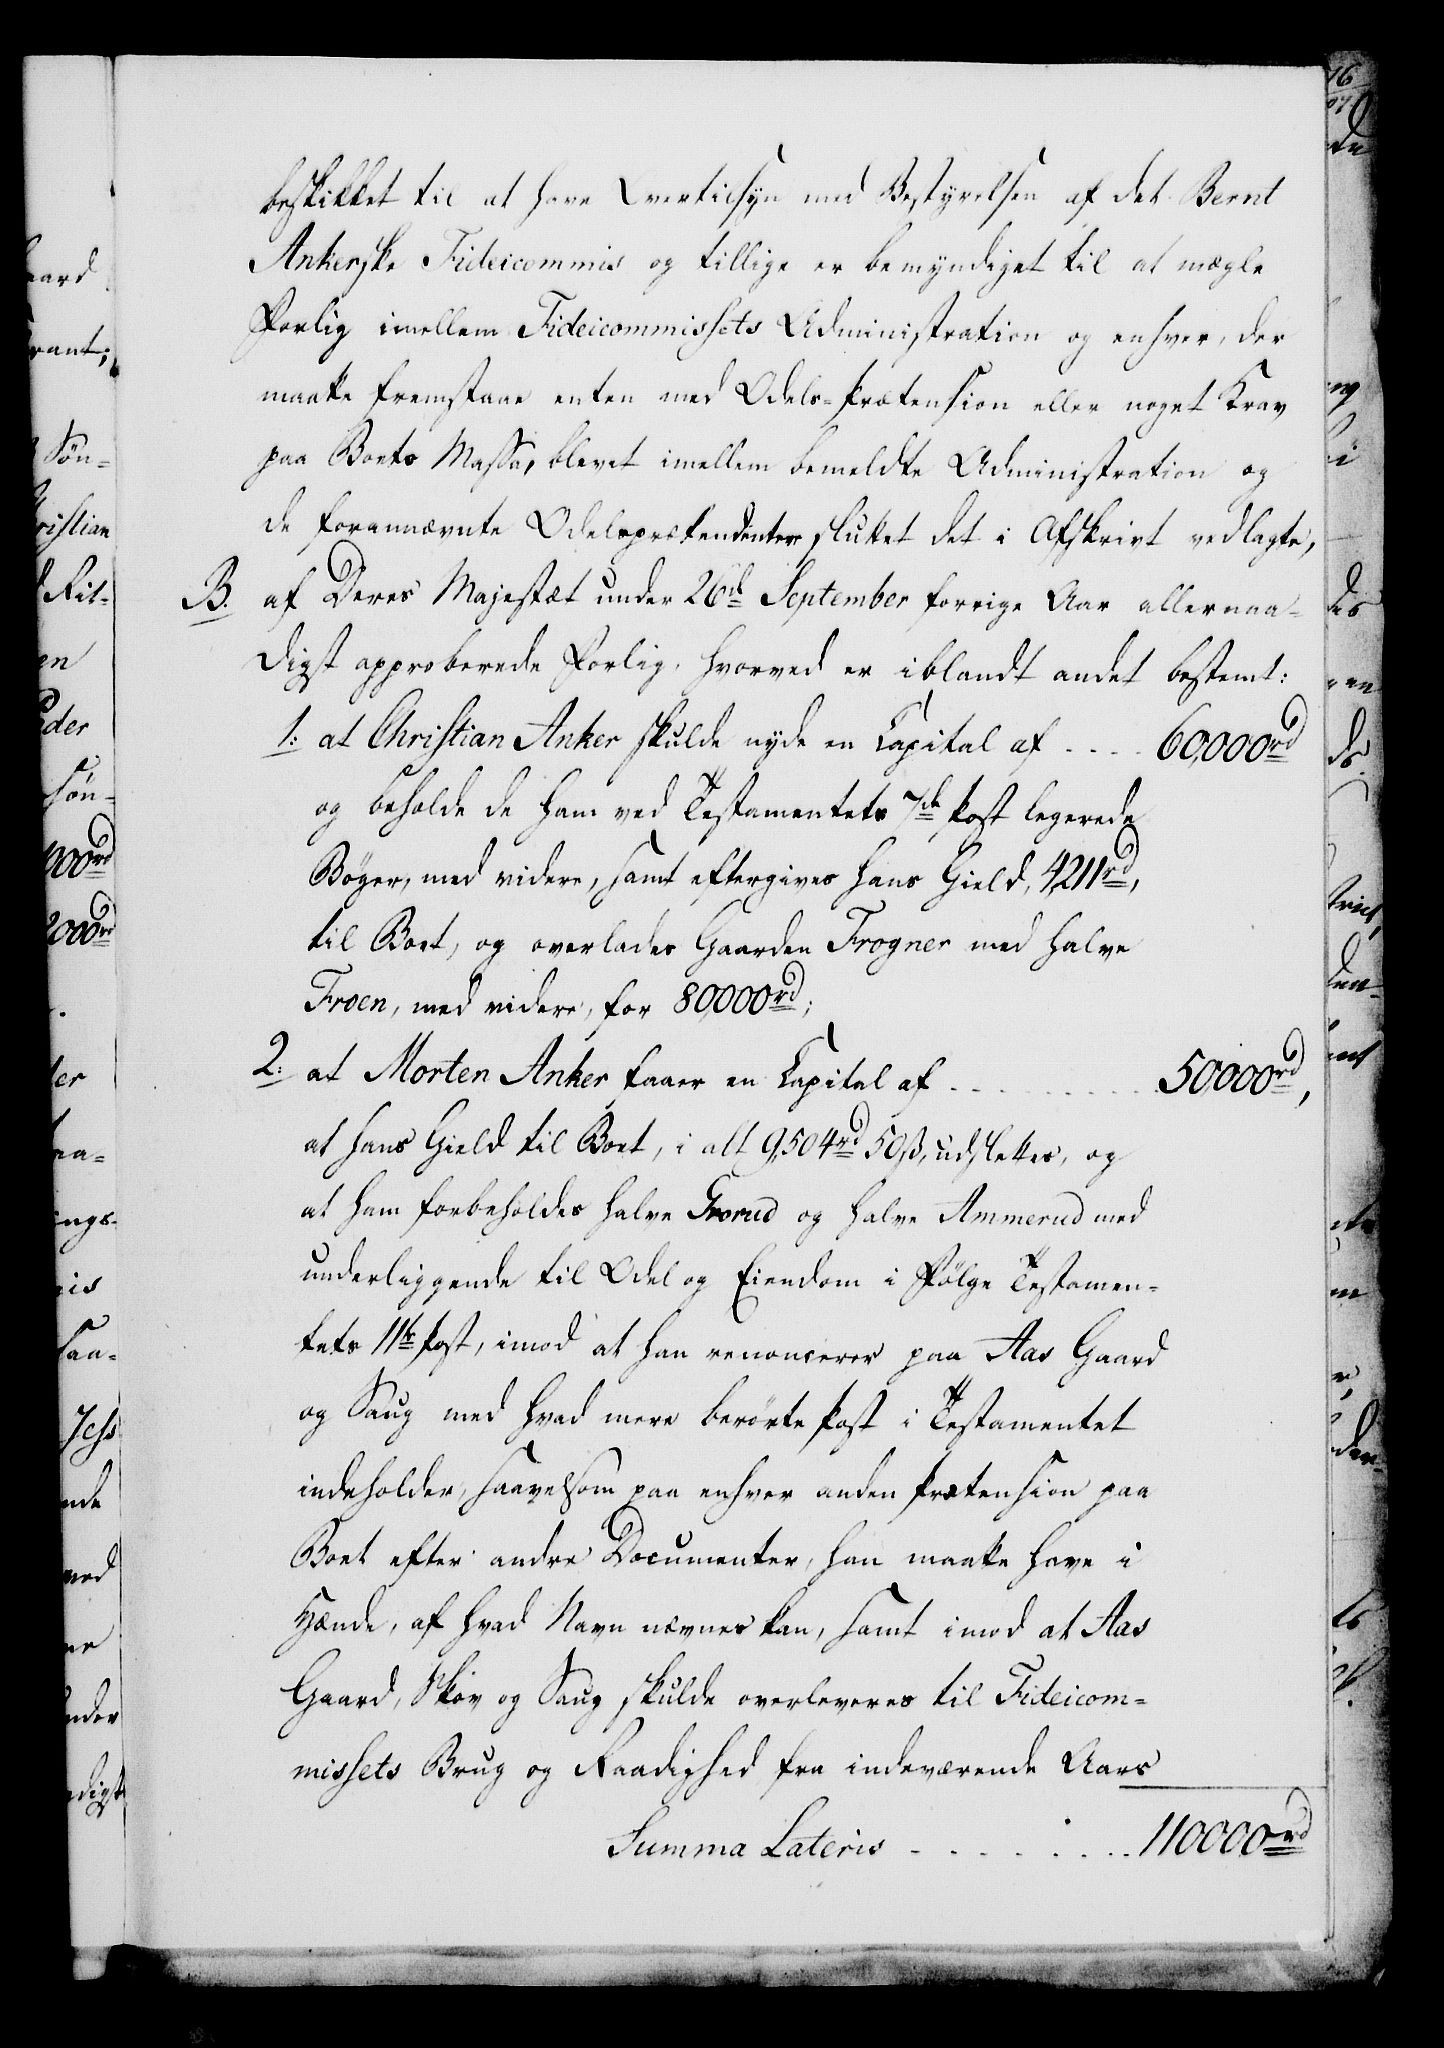 beskikket til at have Overtilsyn med Bestyrelsen af det Bernt
Ankerske Fideicommis og tillige er bemyndiget til at mægle
Forlig imellem Fideicommissets Administration og enhver, der
maatte fremstaae enten med Odels-Prætension eller noget Krav
paa Boets Massa, blevet imellem bemeldte Administration og
de forannævnte Odelsprætendenter sluttet det i Afskrivt vedlagte,
B. af Deres Majestæt under 26d September forrige Aar allernaa-
digst approberede Forlig, hvorved er iblandt andet bestemt:
1: at Christian Anker skulde nyde en Capital af .... 60,000rd
og beholde de ham ved Testamentets 7de Post legerede
Bøger, med videre, samt eftergives hans Gield, 4211rd,
til Boet, og overlades Gaarden Frogner med halve
Froen, med videre, for 80,000rd;
2: at Morten Anker faaer en Capital af ......... 50,000rd,
at hans Gield til Boet, i alt 9,504rd 50ß, udslettes, og
at ham forbeholdes halve Grorud og halve Ammerud med
underliggende til Odel og Eiendom i Følge Testamen-
tets 11te Post, imod at han renoncerer paa Aas Gaard
og Saug med hvad mere berørte Post i Testamentet
indeholder, saavelsom paa enhver anden Prætension paa
Boet efter andre Documenter, han maatte have i
Hænde, af hvad Navn nævnes kan, samt imod at Aas
Gaard, Skov og Saug skulde overleveres til Fideicom-
missets Brug og Raadighed fra indeværende Aars
Summa Lateris ....... 110000rd